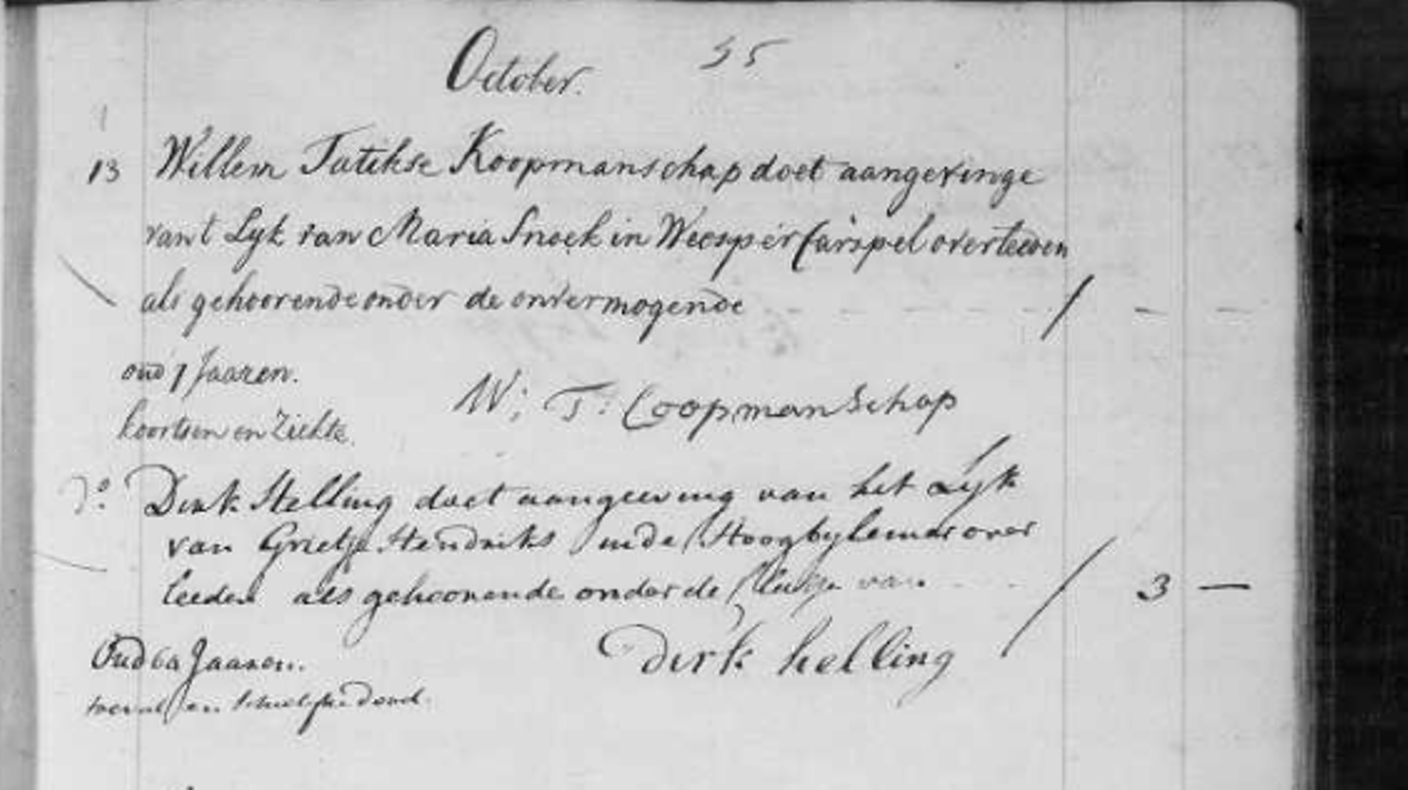 October. 55
13 Willem Tatekse Koopmanschap doet aangevinge
van t Lyk van Maria Snoek in Weesper Carspel overleeden
als gehoorende onder de onvermogende
oud 7 Jaaren.
W: T: Coopmanschap
koortsen en Ziekte.
do Dirk Helling doet aangeeving van het Lyk
van Grietje Hendriks inde Hoogbylemer over
leeden als gehoorende onder de klasse van 3 —
Oud 62 Jaaren.
Dirk helling
toeval en schielyke dood.